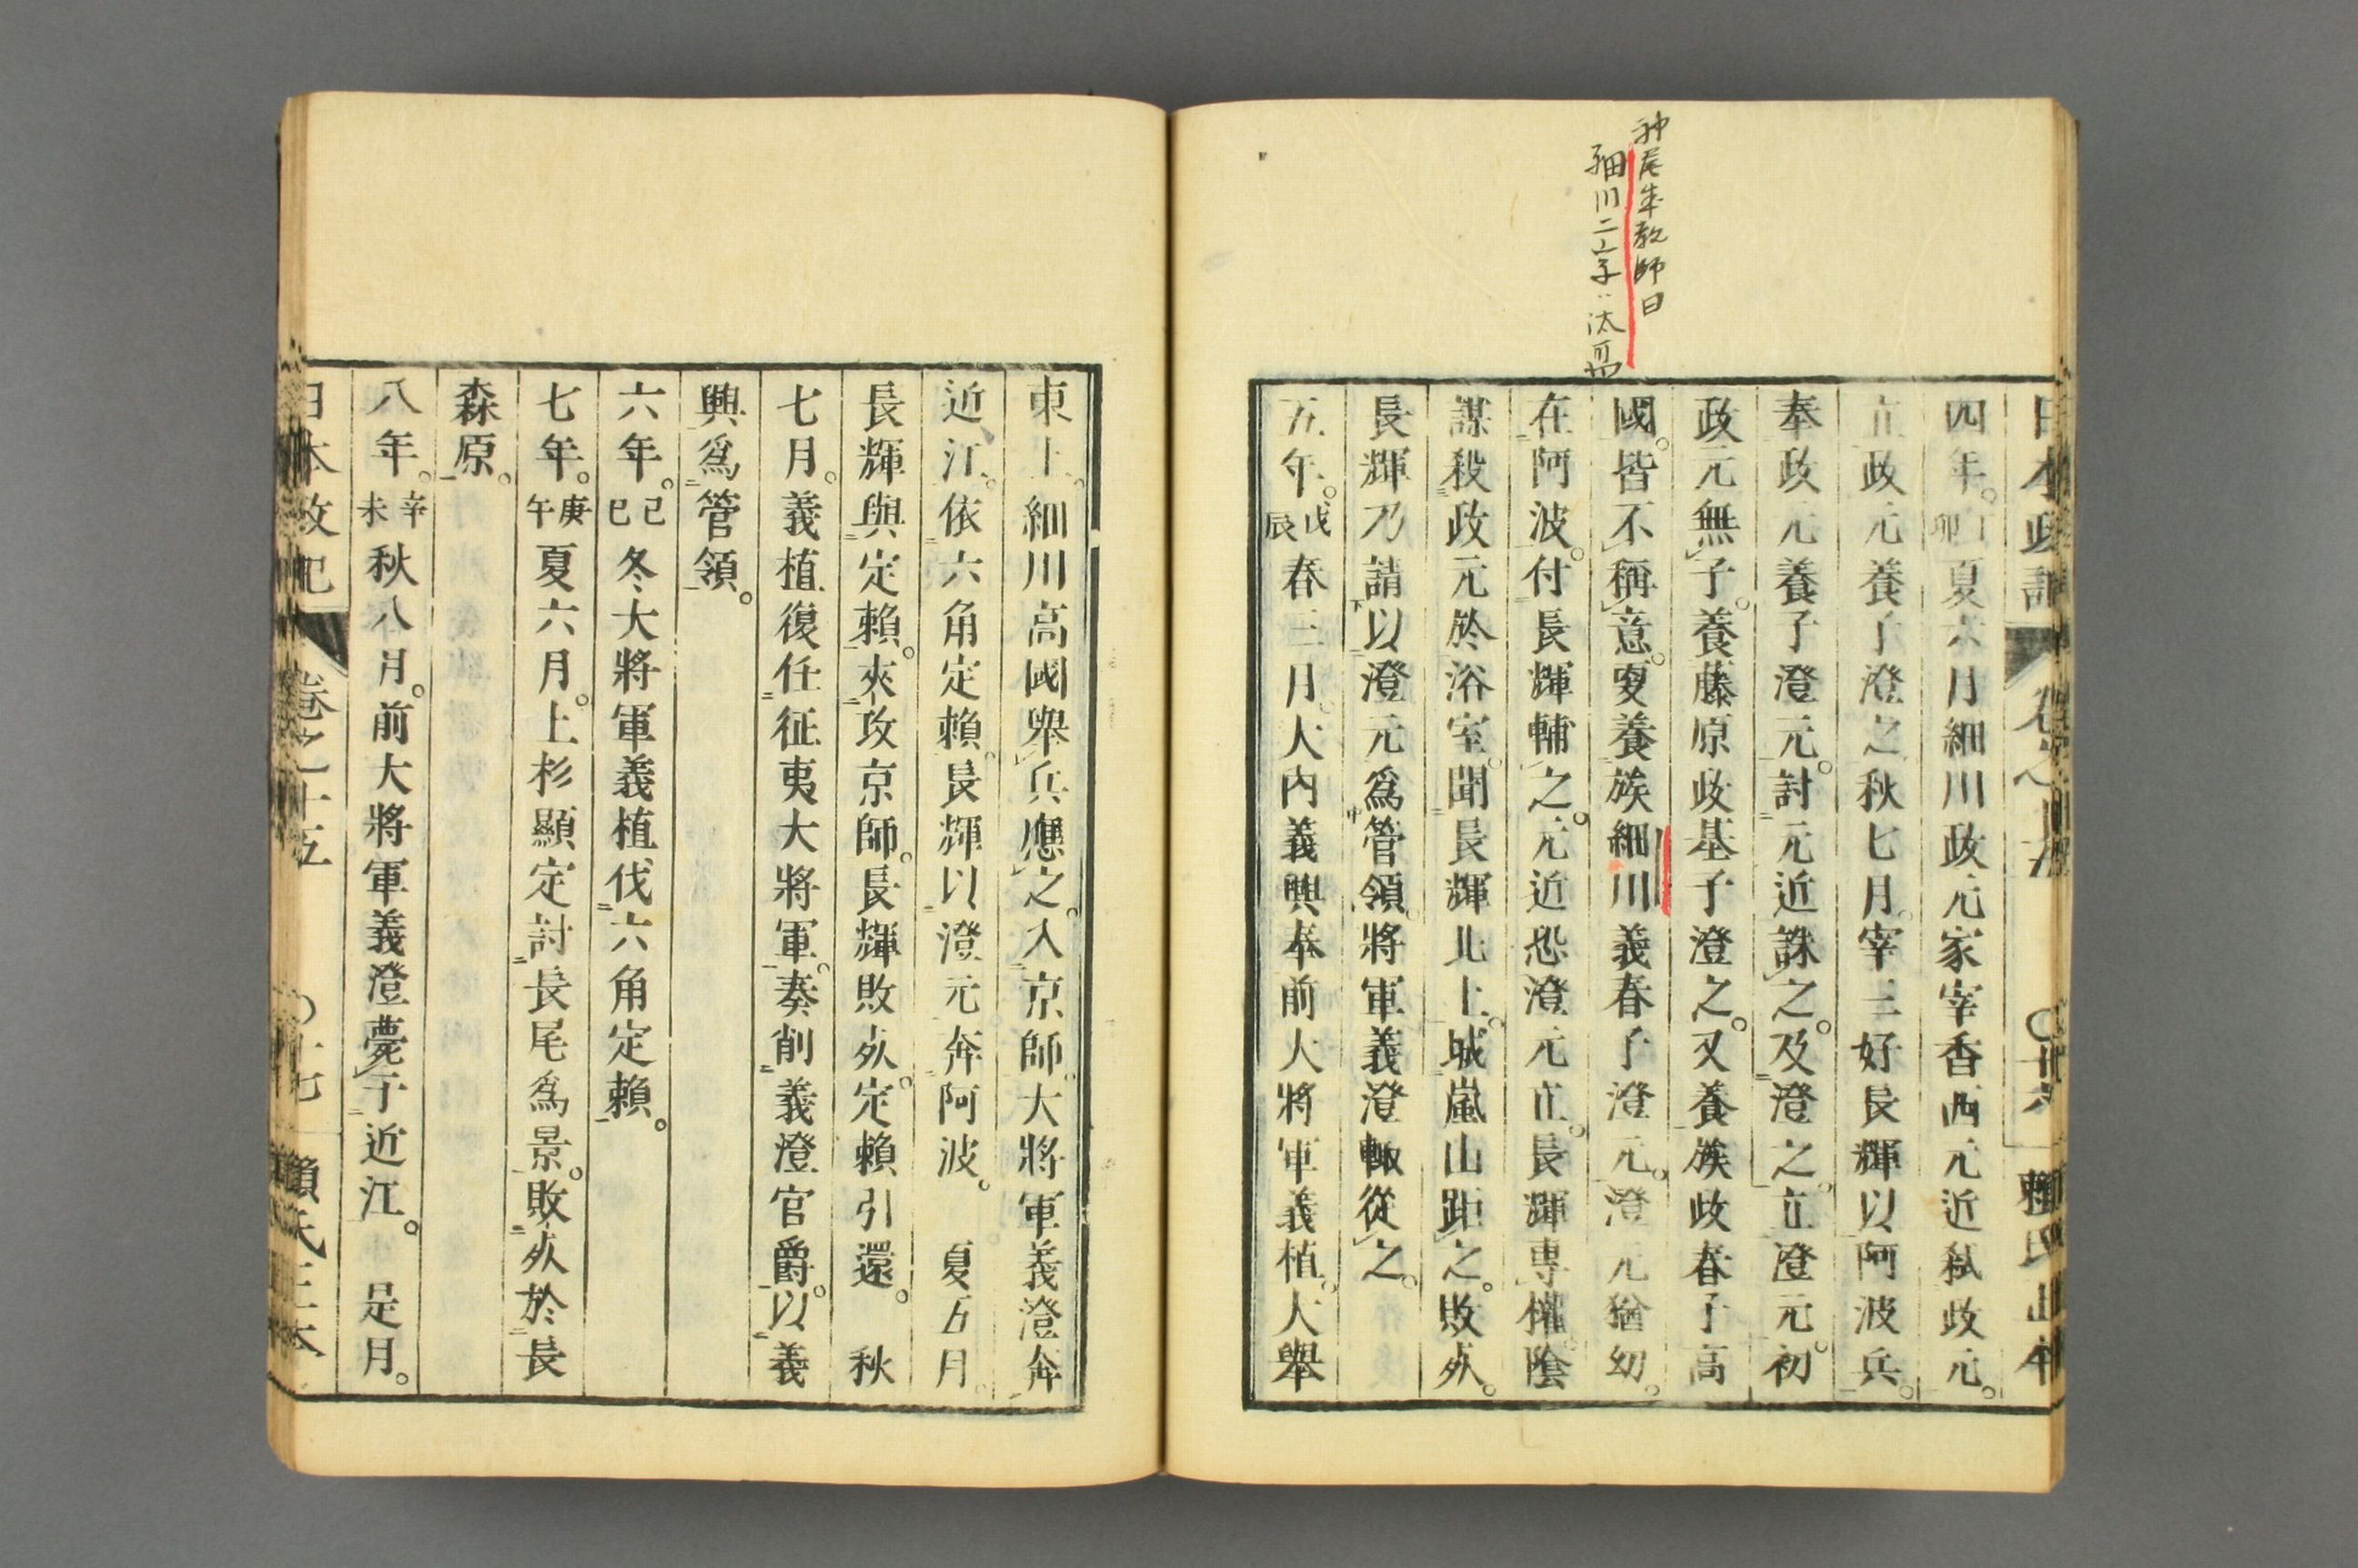 神尾本教師曰
細川二字ハ汰可
日本政記 卷之十五 〇十六 賴氏正本
四年。丁卯夏六月細川政元家宰香西元近弑政元。
立政元養子澄之秋七月。宰三好長輝以阿波兵。
奉政元養子澄元。討元近誅之。及澄之。立澄元。初
政元無子。養藤原政基子澄之。又養族政春子高
國。皆不稱意。更養族細川義春子澄元。澄元猶幼。
在阿波。付長輝輔之。元近恐澄元立。長輝專權。陰
謀殺政元於浴室。聞長輝北上。城嵐山距之。敗歿。
長輝乃請以澄元爲管領。將軍義澄輙從之。
五年。戊辰春三月。大內義興奉前大將軍義植。大舉
東上。細川高國舉兵應之。入京師。大將軍義澄奔
近江。依六角定賴。長輝以澄元奔阿波。 夏五月。
長輝與定賴。夾攻京師。長輝敗歿。定賴引還。 秋
七月。義植復任征夷大將軍。奏削義澄官爵。以義
興爲管領。
六年。己巳冬大將軍義植伐六角定賴。
七年。庚午夏六月。上杉顯定討長尾爲景。敗歿於長
森原。
八年。辛未秋八月。前大將軍義澄薨于近江。 是月。
日本政記 卷之十五 〇十七 賴氏正本